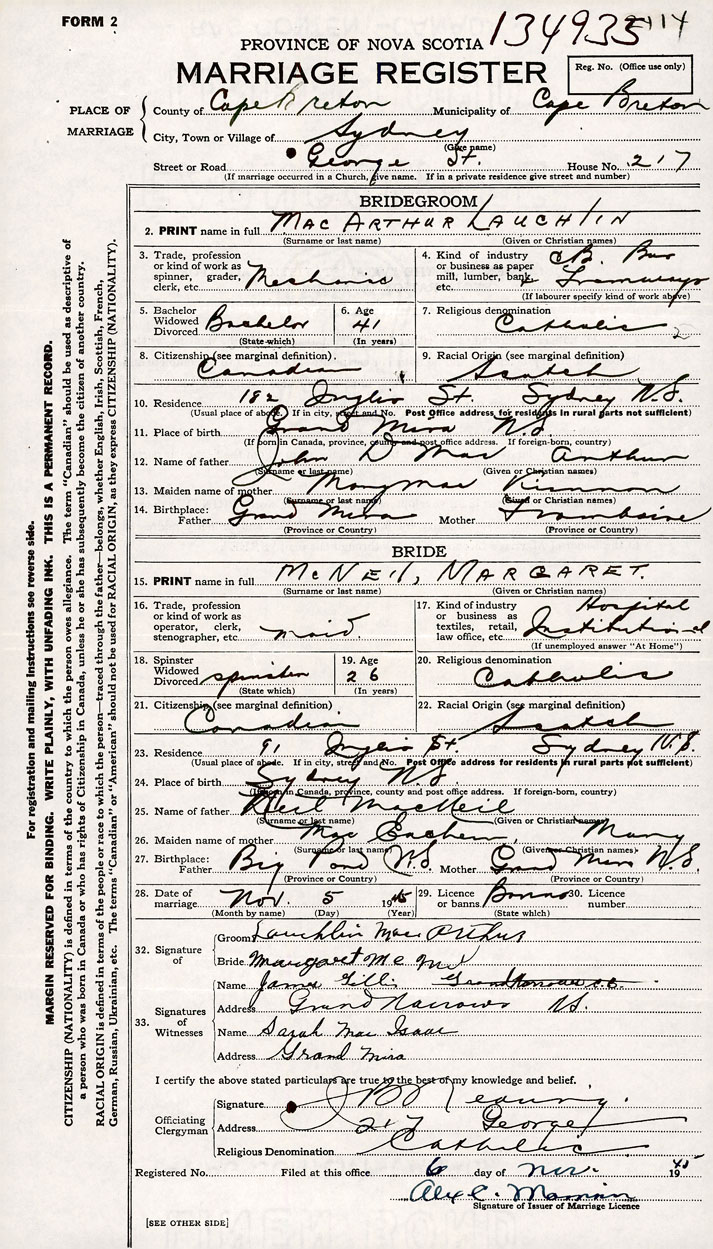 FORM 2
134935
PROVINCE OF NOVA SCOTIA
MARRIAGE REGISTER
Reg. No. (Office use only)
PLACE OF MARRIAGE
County of Cape Breton Municipality of Cape Breton
City, Town or Village of Sydney
(Give name)
Street or Road George St. House No. 217
(If marriage occurred in a Church, give name. If in a private residence give street and number)
BRIDEGROOM
2. PRINT name in full MAC ARTHUR LAUCHLIN
(Surname or last name) (Given or Christian names)
3. Trade, profession or kind of work as spinner, grader, clerk, etc. Mechanic
4. Kind of industry or business as paper mill, lumber, bank, etc. C.B. Bus & Tramways
(If labourer specify kind of work above)
5. Bachelor Widowed Divorced Bachelor
(State which)
6. Age 41
(In years)
7. Religious denomination Catholic
8. Citizenship (see marginal definition). Canadian
9. Racial Origin (see marginal definition) Scotch
10. Residence 182 Inglis St. Sydney N.S.
(Usual place of abode. If in city, street and No. Post Office address for residents in rural parts not sufficient)
11. Place of birth Grand Mira N.S.
(If born in Canada, province, county and post office address. If foreign-born, country)
12. Name of father John D Mac Arthur
(Surname or last name) (Given or Christian names)
13. Maiden name of mother Mary Mac Kinnon
(Surname or last name) (Given or Christian names)
14. Birthplace: Father Grand Mira Mother Framboise
(Province or Country) (Province or Country)
BRIDE
15. PRINT name in full MCNEIL, MARGARET.
(Surname or last name) (Given or Christian names)
16. Trade, profession or kind of work as operator, clerk, stenographer, etc. maid.
17. Kind of industry or business as textiles, retail, law office, etc. Hospital Institutional
(If unemployed answer "At Home")
18. Spinster Widowed Divorced spinster
(State which)
19. Age 26
(In years)
20. Religious denomination Catholic
21. Citizenship (see marginal definition) Canadian
22. Racial Origin (see marginal definition) Scotch
23. Residence 91 Inglis St. Sydney N.S.
(Usual place of abode. If in city, street and No. Post Office address for residents in rural parts not sufficient)
24. Place of birth Sydney N.S.
(If born in Canada, province, county and post office address. If foreign-born, country)
25. Name of father Neil MacNeil
(Surname or last name) (Given or Christian names)
26. Maiden name of mother Mac Eachern Mary
(Surname or last name) (Given or Christian names)
27. Birthplace: Father Big Pond N.S. Mother Grand Mira N.S.
(Province or Country) (Province or Country)
28. Date of marriage Nov. 5 1945
(Month by name) (Day) (Year)
29. Licence or banns Banns
(State which)
30. Licence number
32. Signature of
Groom Lauchlin Mac Arthur
Bride Margaret Mc Neil
33. Signatures of Witnesses
Name James Gillis Grand Narrows C.B.
Address Grand Narrows NS.
Name Sarah Mac Isaac
Address Grand Mira
I certify the above stated particulars are true to the best of my knowledge and belief.
Officiating Clergyman
Signature
Address 217 George
Religious Denomination Catholic
Registered No. Filed at this office 6 day of Nov. 1945
Alex C.
Signature of Issuer of Marriage Licence
[SEE OTHER SIDE]
For registration and mailing instructions see reverse side.
MARGIN RESERVED FOR BINDING. WRITE PLAINLY, WITH UNFADING INK. THIS IS A PERMANENT RECORD.
CITIZENSHIP (NATIONALITY) is defined in terms of the country to which the person owes allegiance. The term "Canadian" should be used as descriptive of
a person who was born in Canada or who has rights of Citizenship in Canada, unless he or she has subsequently become the citizen of another country.
RACIAL ORIGIN is defined in terms of the people or race to which the person—traced through the father—belongs, whether English, Irish, Scottish, French,
German, Russian, Ukrainian, etc. The terms "Canadian" or "American" should not be used for RACIAL ORIGIN, as they express CITIZENSHIP (NATIONALITY).